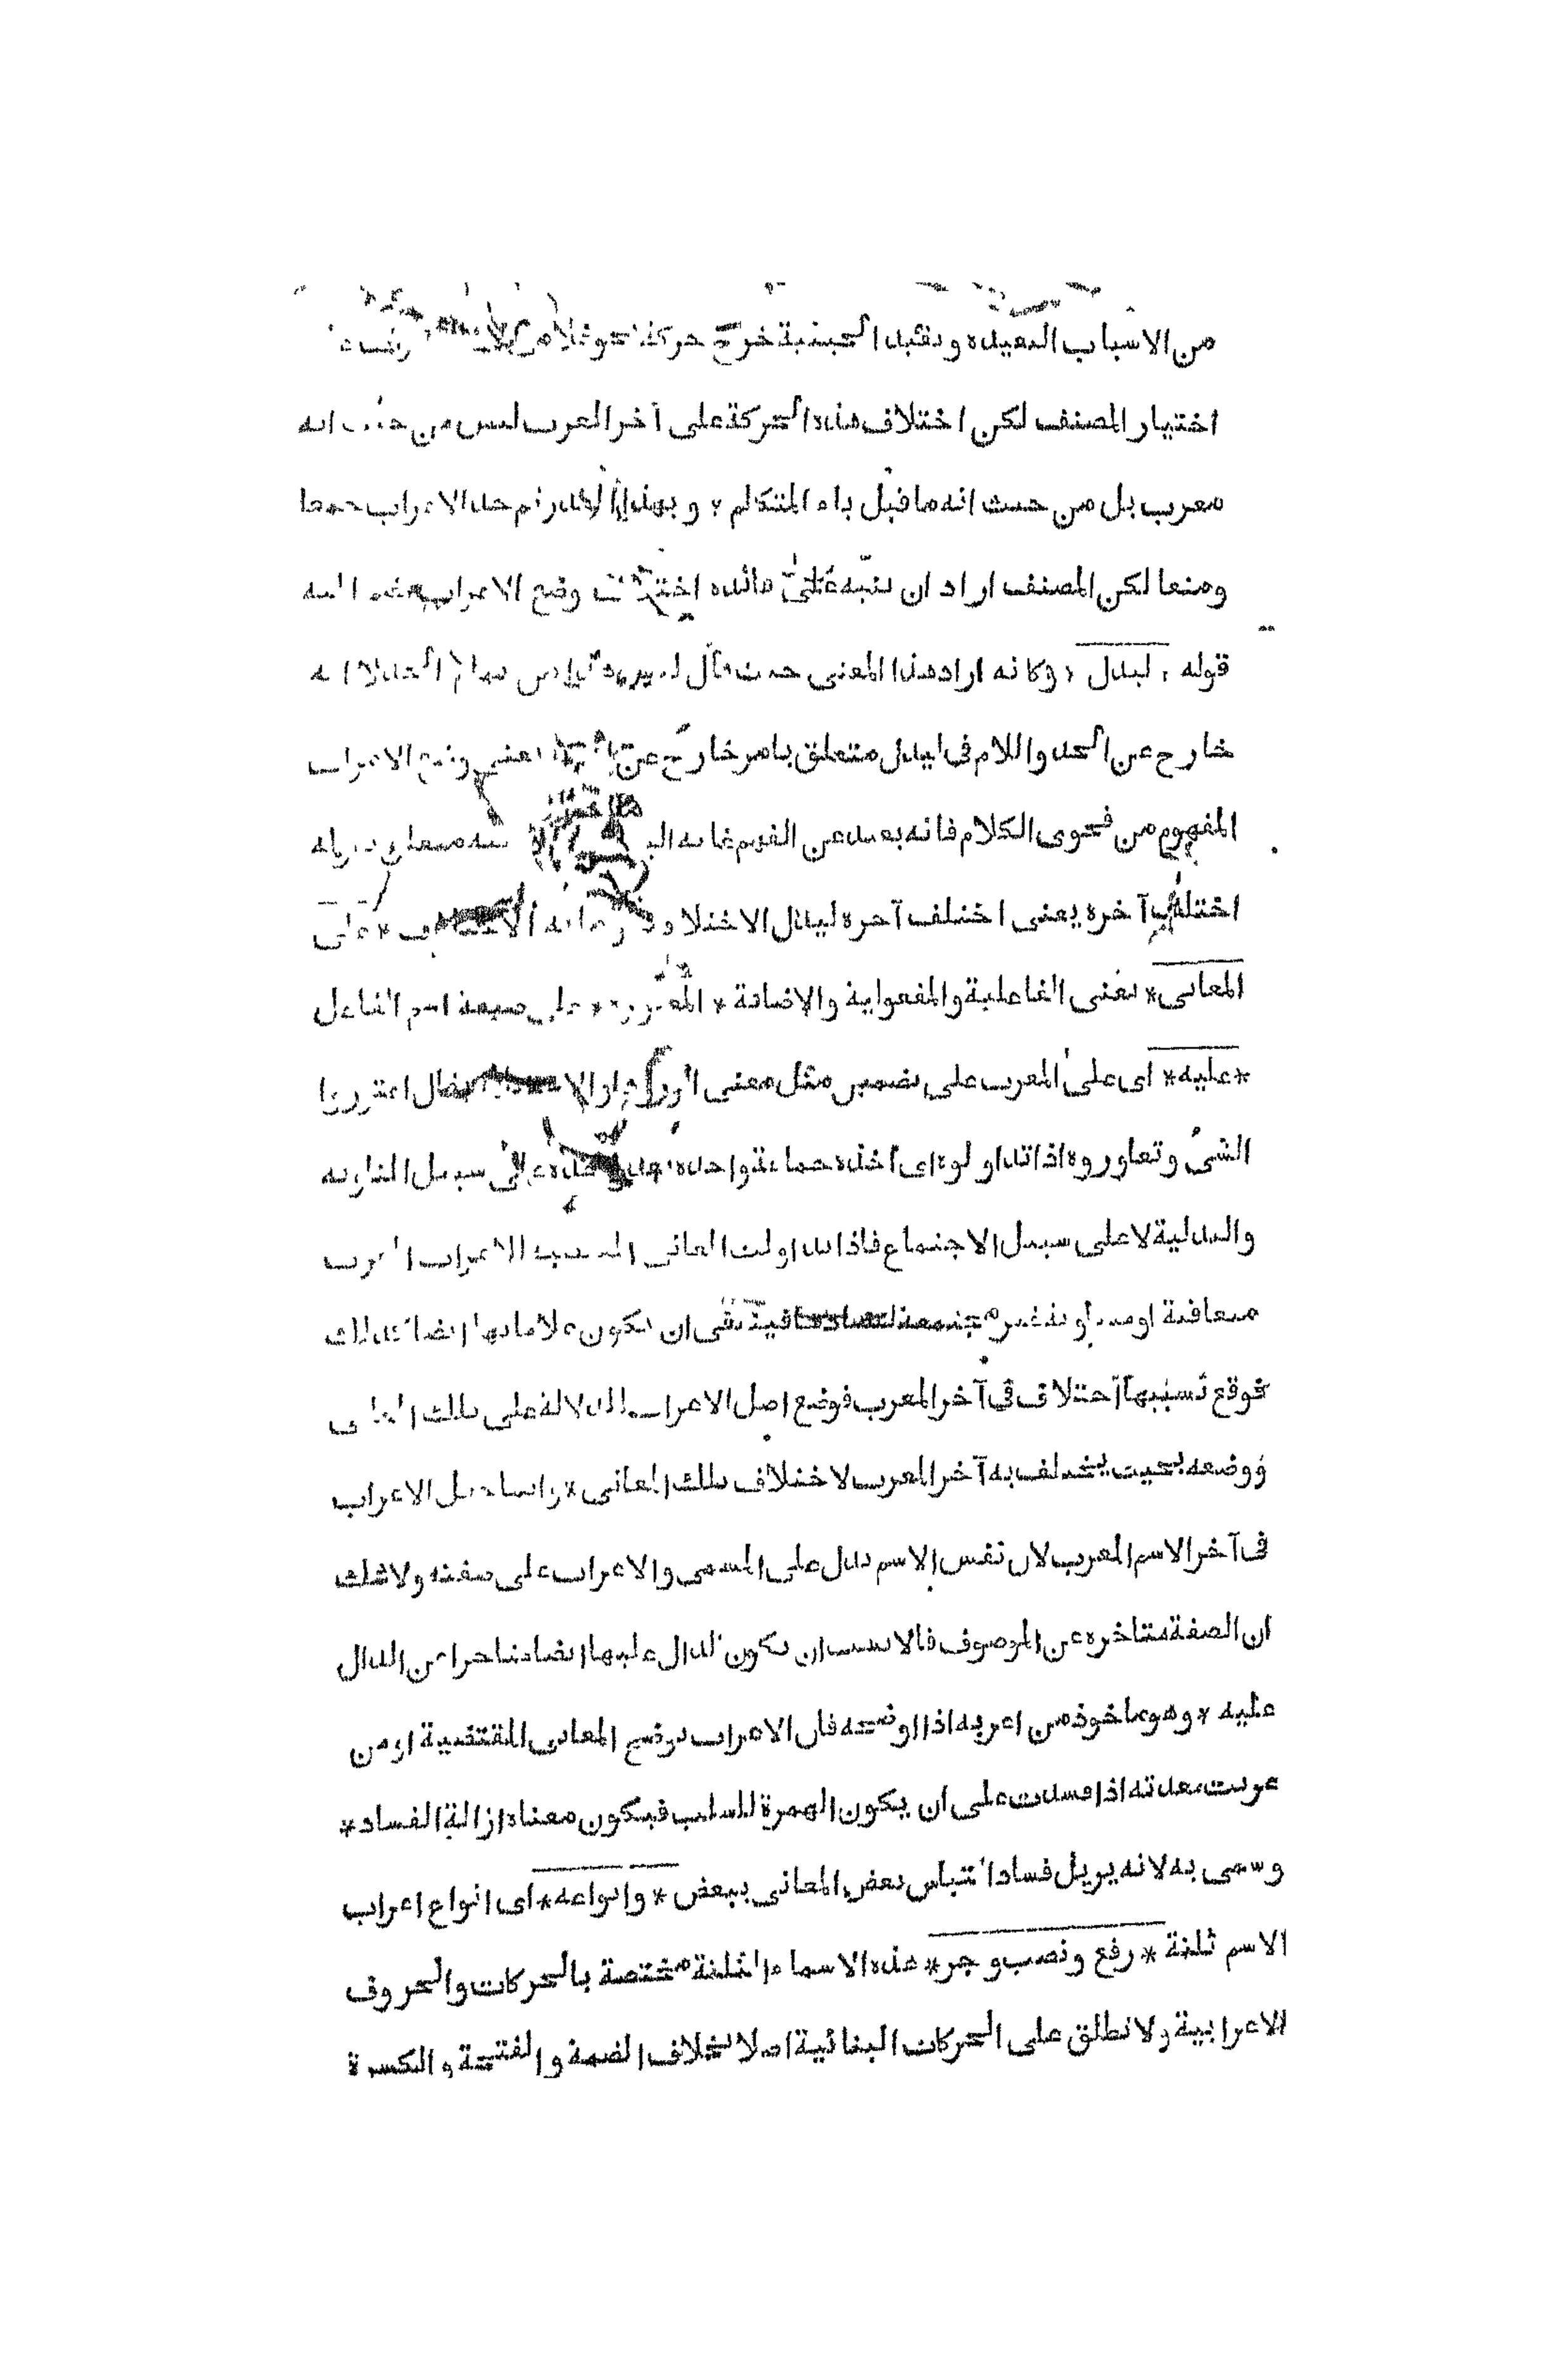 من الاسباب البعيدة وبقيد الحيثية خرج حركة نحو غلامى
اختيار المصنف لكن اختلاف هذه الحركة على آخر المعرب ليس من حيث انه
معرب بل من حيث انه ما قبل ياء المتكلم * وبهذا القدر تم حد الاعراب جمعا
ومنعا لكن المصنف اراد ان ينبه على فائدة اختلاف وضع الاعراب فضم اليه
قوله * ليدل * وكانه اراد هذا المعنى حيث قال ليس هذا من تمام الحد لا انه
خارج عن الحد واللام فى ليدل متعلق بامر خارج عن يعنى وضع الاعراب
المفهوم من فحوى الكلام فانه بعيد عن الفهم غاية متعلق بقوله
اختلف آخره يعنى اختلف آخره ليدل الاختلاف على
المعانى * يعنى الفاعلية والمفعولية والاضافة * المعتورة * على صيغة اسم الفاعل
* عليه * اى على المعرب على تضمين مثل معنى الورود او الاستيلاء يقال اعتوروا
الشىء وتعاوروه اذا تداولوه اى اخذه جماعة واحدة بعد واحدة على سبيل المناوبة
والبدلية لا على سبيل الاجتماع فاذا تداولت المعانى المقتضية للاعراب المعرب
متعاقبة متناوبة غير مجتمعة لتضادها فينبغى ان تكون علاماتها ايضا كذلك
فوقع بسببها اختلاف فى آخر المعرب فوضع اصل الاعراب للدلالة على تلك المعانى
ووضعه بحيث يختلف به آخر المعرب لاختلاف تلك المعانى * وانما جعل الاعراب
فى آخر الاسم المعرب لان نفس الاسم يدل على المسمى والاعراب على صفته ولا شك
ان الصفة متاخرة عن الموصوف فالانسب ان يكون الدال عليها ايضا متاخرا عن الدال
عليه * وهو ماخوذ من اعربه اذا اوضحه فان الاعراب يوضح المعانى المقتضية او من
عربت معدته اذا فسدت على ان يكون الهمزة للسلب فيكون معناه ازالة الفساد *
وسمى به لانه يزيل فساد التباس بعض المعانى ببعض * وانواعه * اى انواع اعراب
الاسم ثلثة * رفع ونصب وجر * هذه الاسماء الثلثة مختصة بالحركات والحروف
الاعرابية ولا تطلق على الحركات البنائية اصلا بخلاف الضمة والفتحة والكسرة